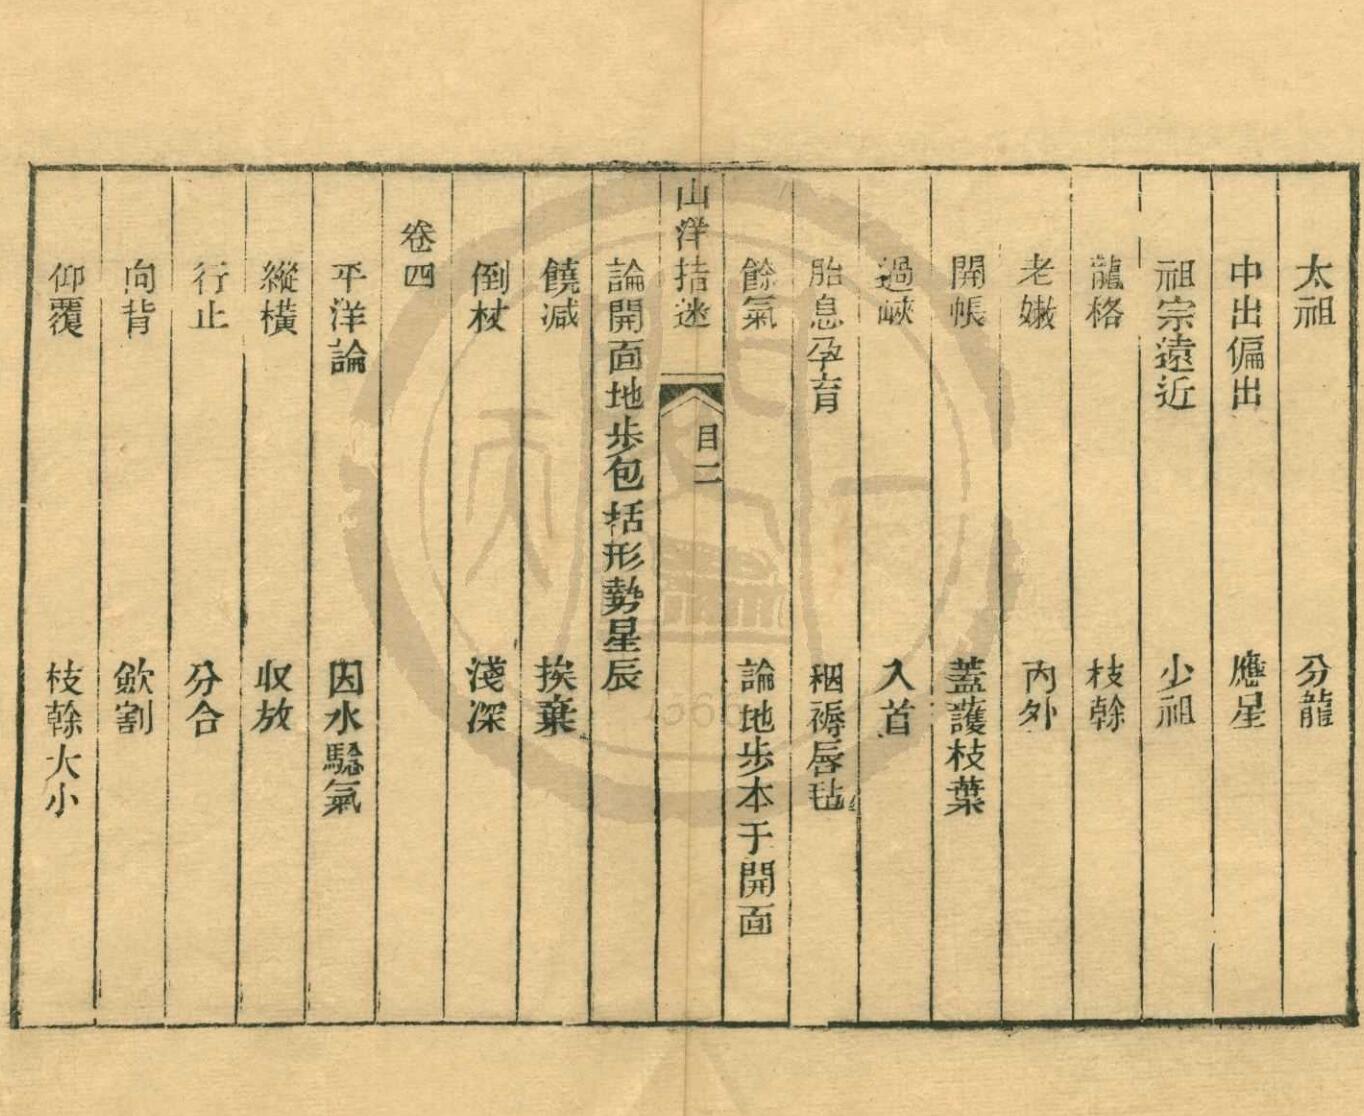 太祖　分龍
中出偏出　應星
祖宗遠近　少祖
龍格　枝榦
老嫩　內外
開帳　蓋護枝葉
過峽　入首
胎息孕育　裀褥唇毡
餘氣　論地步本于開面
山洋指迷　目二
論開面地步包括形勢星辰
饒減　挨棄
倒杖　淺深
卷四
平洋論　因水驗氣
縱橫　收放
行止　分合
向背　歛割
仰覆　枝榦大小